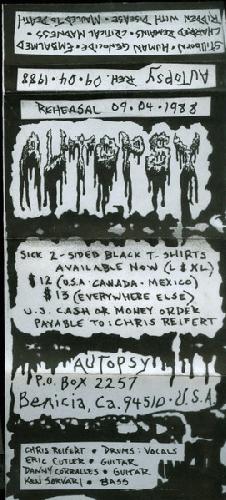 STILLBORN • HUMAN GENOCIDE • EMBALMED
CHARRED REMAINS • CRITICAL MADNESS
RIDDEN WITH DISEASE • MAULED TO DEATH
AUTOPSY REH. 09.04.1988
REHEARSAL 09.04.1988
AUTOPSY
SICK 2-SIDED BLACK T-SHIRTS
AVAILABLE NOW (L & XL)
$12 (U.S.A. • CANADA • MEXICO)
$15 (EVERYWHERE ELSE)
U.S. CASH OR MONEY ORDER
PAYABLE TO: CHRIS REIFERT
AUTOPSY
P.O. BOX 2257
BENICIA, Ca. 94510 • U.S.A.
CHRIS REIFERT • DRUMS: VOCALS
ERIC CUTLER • GUITAR
DANNY CORRALLES • GUITAR
KEN SORVARI • BASS